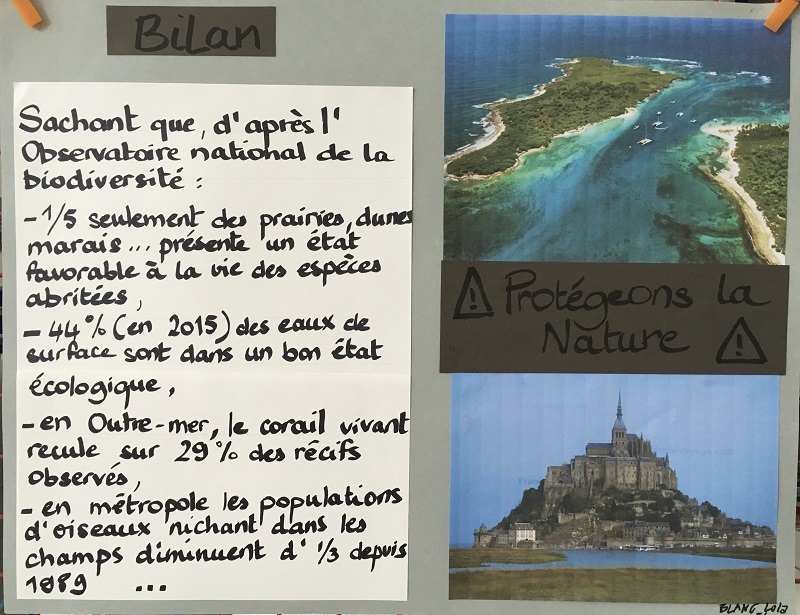 BiLan
Sachant que, d'après l'
Observatoire national de la
biodiversité :
- 1/5 seulement des prairies, dunes
marais... présente un état
favorable à la vie des espèces
abritées,
- 44% (en 2015) des eaux de
surface sont dans un bon état
écologique,
- en Outre-mer, le corail vivant
recule sur 29% des récifs
observés,
- en métropole les populations
d'oiseaux nichant dans les
champs diminuent d' 1/3 depuis
1989 ...
Protégeons la
Nature
BLANC_Lola